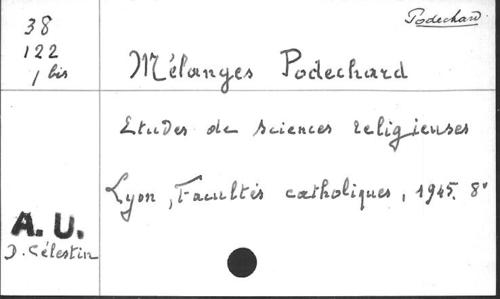 Podechard
38
122
1 bis
Mélanges Podechard
Etudes de sciences religieuses
Lyon, Facultés catholiques, 1945. 8°
A. U.
D. Célestin